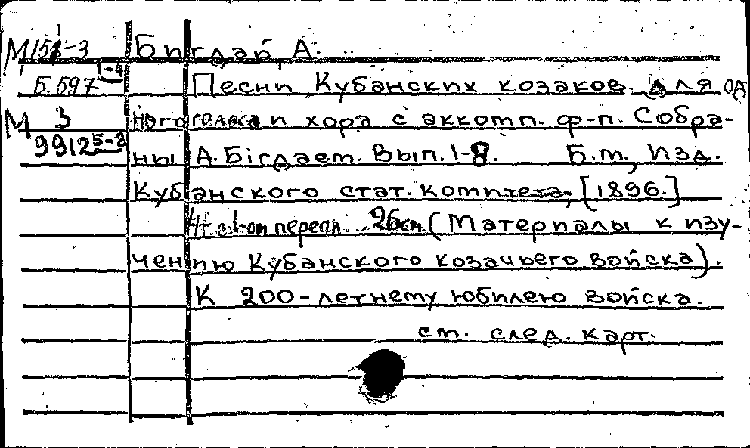 М 151-3 Бигдай, А.
Б.597 1-4 Песни Кубанских козаков для од
М 3 ного голоса и хора с аккомп. ф-п. Собра-
9912 5-8 ны А. Бігдаем. Вып. 1-8. Б.м., Изд.
Кубанского стат. Комитета, [1896.]
26см (Материалы к изу-
чению Кубанского козачьего войска).
К 200-летнему юбилею войска.
см. след. карт.